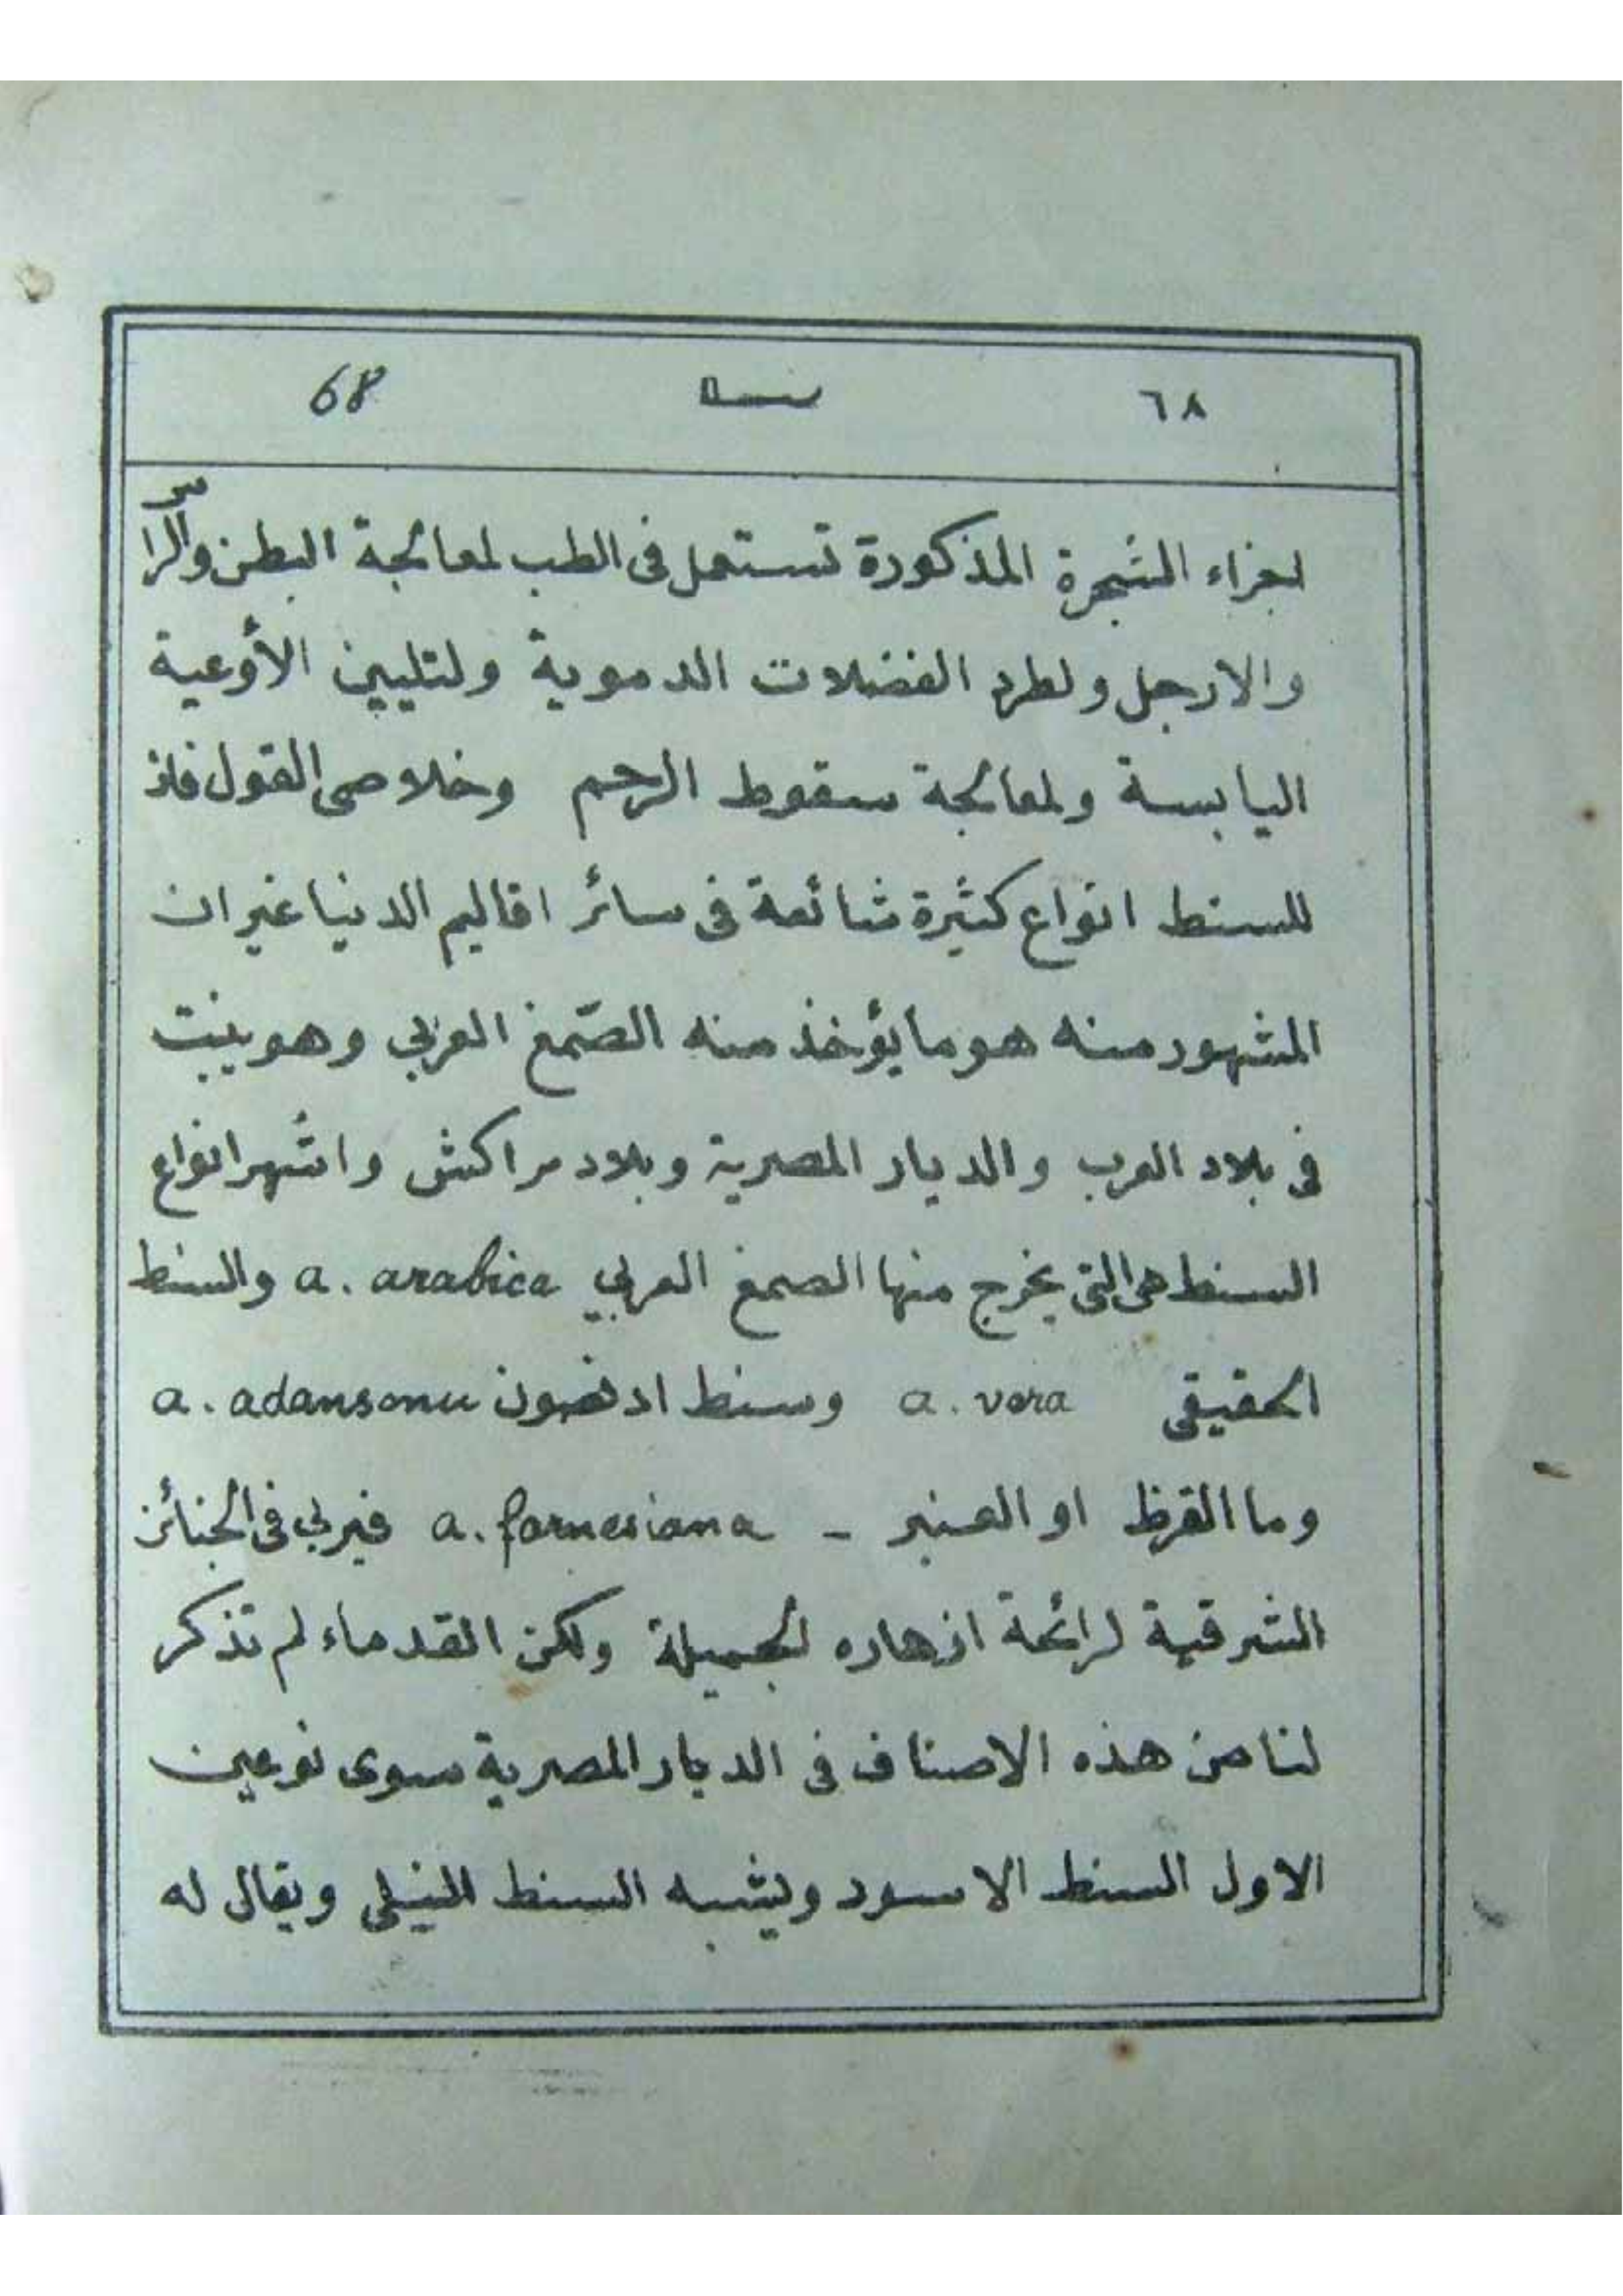 ٦٨ 68
اجزاء الشجرة المذكورة تستعمل فى الطب لمعالجة البطن والرأس
والارجل ولطرد الفضلات الدموية ولتليين الأوعية
اليابسة ولمعالجة سقوط الرحم وخلاصى القول فان
للسنط انواع كثيرة شائعة فى سائر اقاليم الدنيا غير ان
المشهور منه هو ما يؤخذ منه الصّمغ العربي وهو ينبت
فى بلاد العرب والديار المصرية وبلاد مراكش واشهر انواع
السنط هى التى يخرج منها الصمغ العربي a. arabica والسنط
الحقيقى a. vera وسنط ادنصون a. adansonii
وما القرظ او العنبر - a. farnesiana فيربى فى الجنائن
الشرقية لرائحة ازهاره الجميلة ولكن القدماء لم تذكر
لنا من هذه الاصناف فى الديار المصرية سوى نوعين
الاول السنط الاسود ويشبه السنط النيلى ويقال له